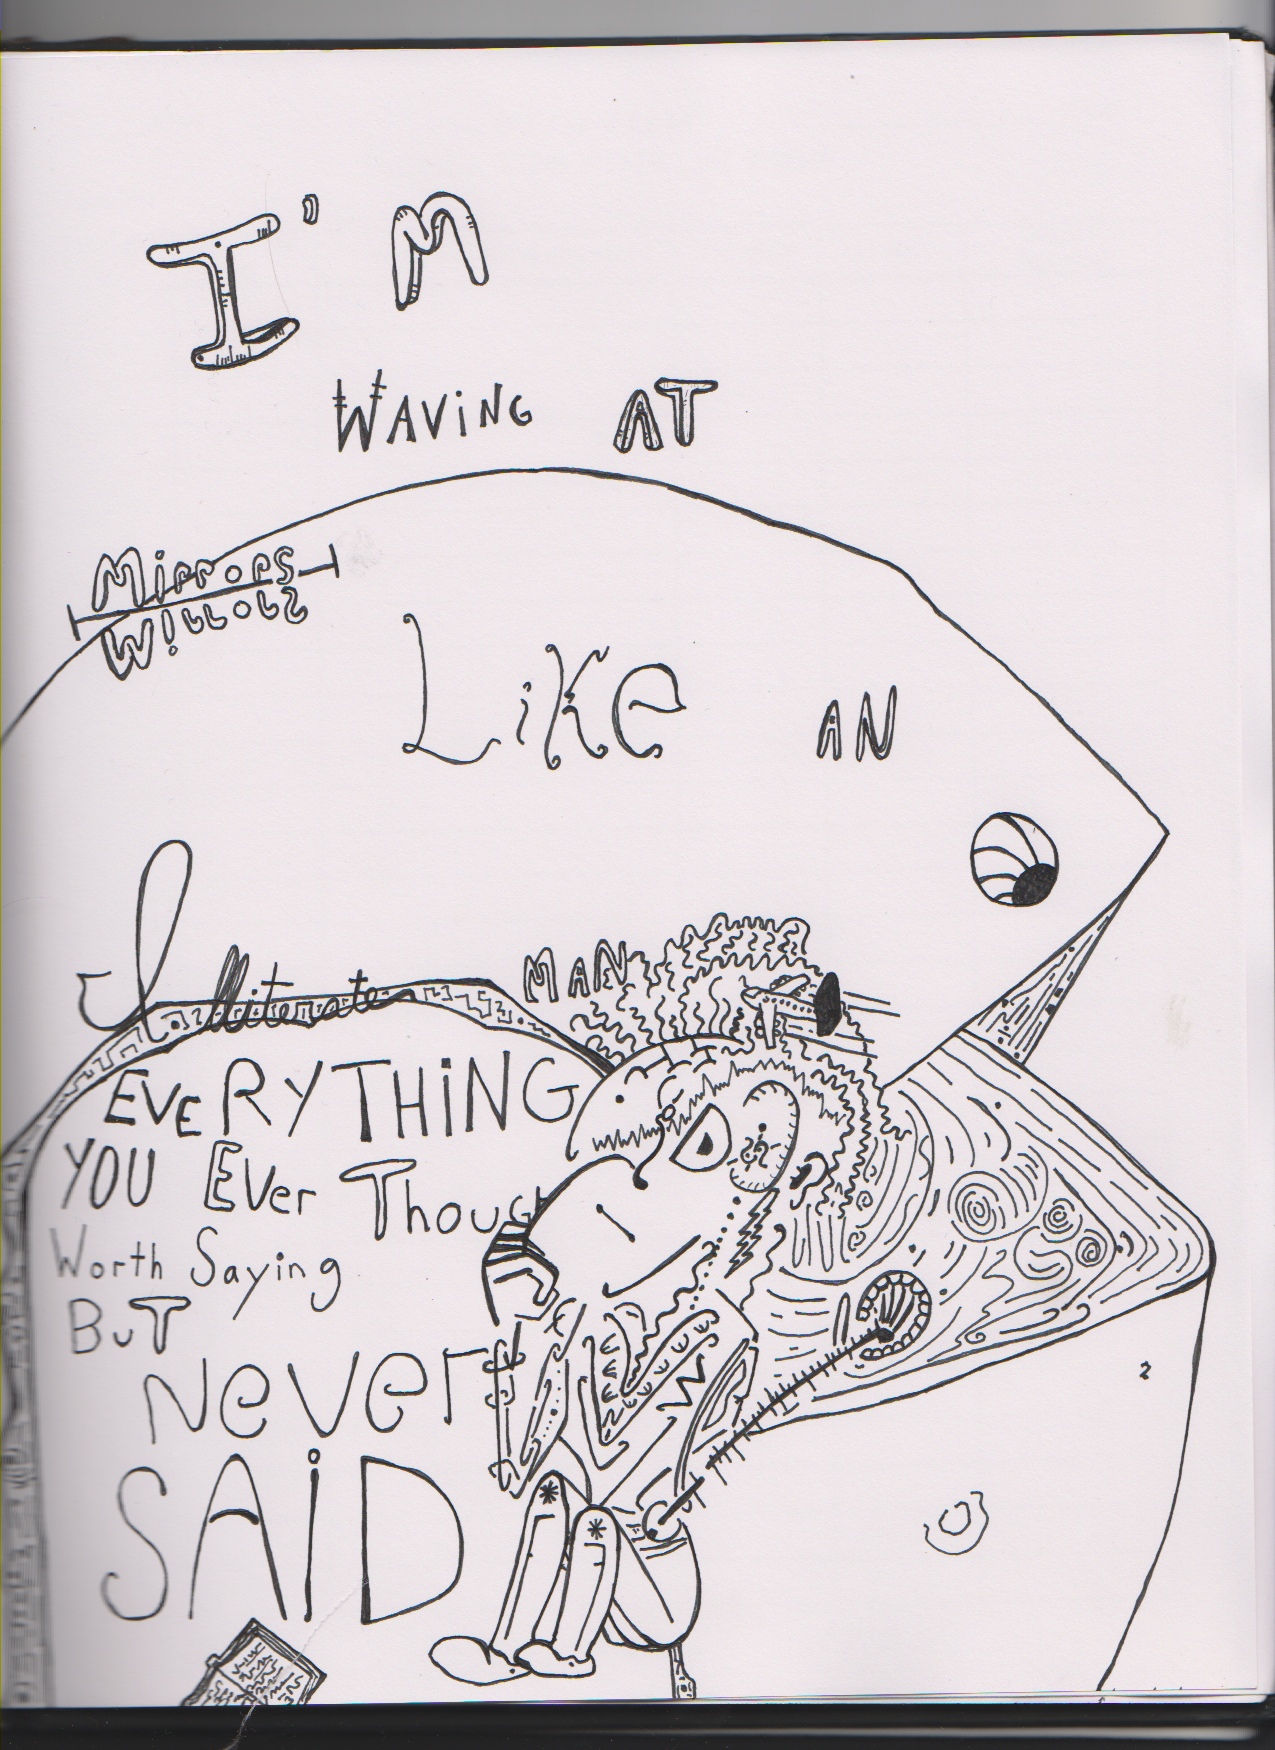 I'M
WAVING AT
Mirrors
Mirrors
Like AN
Illiterate MAN
EVERYTHING
YOU EVer Thoug
Worth Saying
BuT
Never
SAiD
2